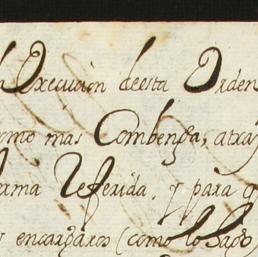 Execucion deesta Orden
como mas Combenga, atra
forma Referida, y para q
y encargaros (como lo hago)